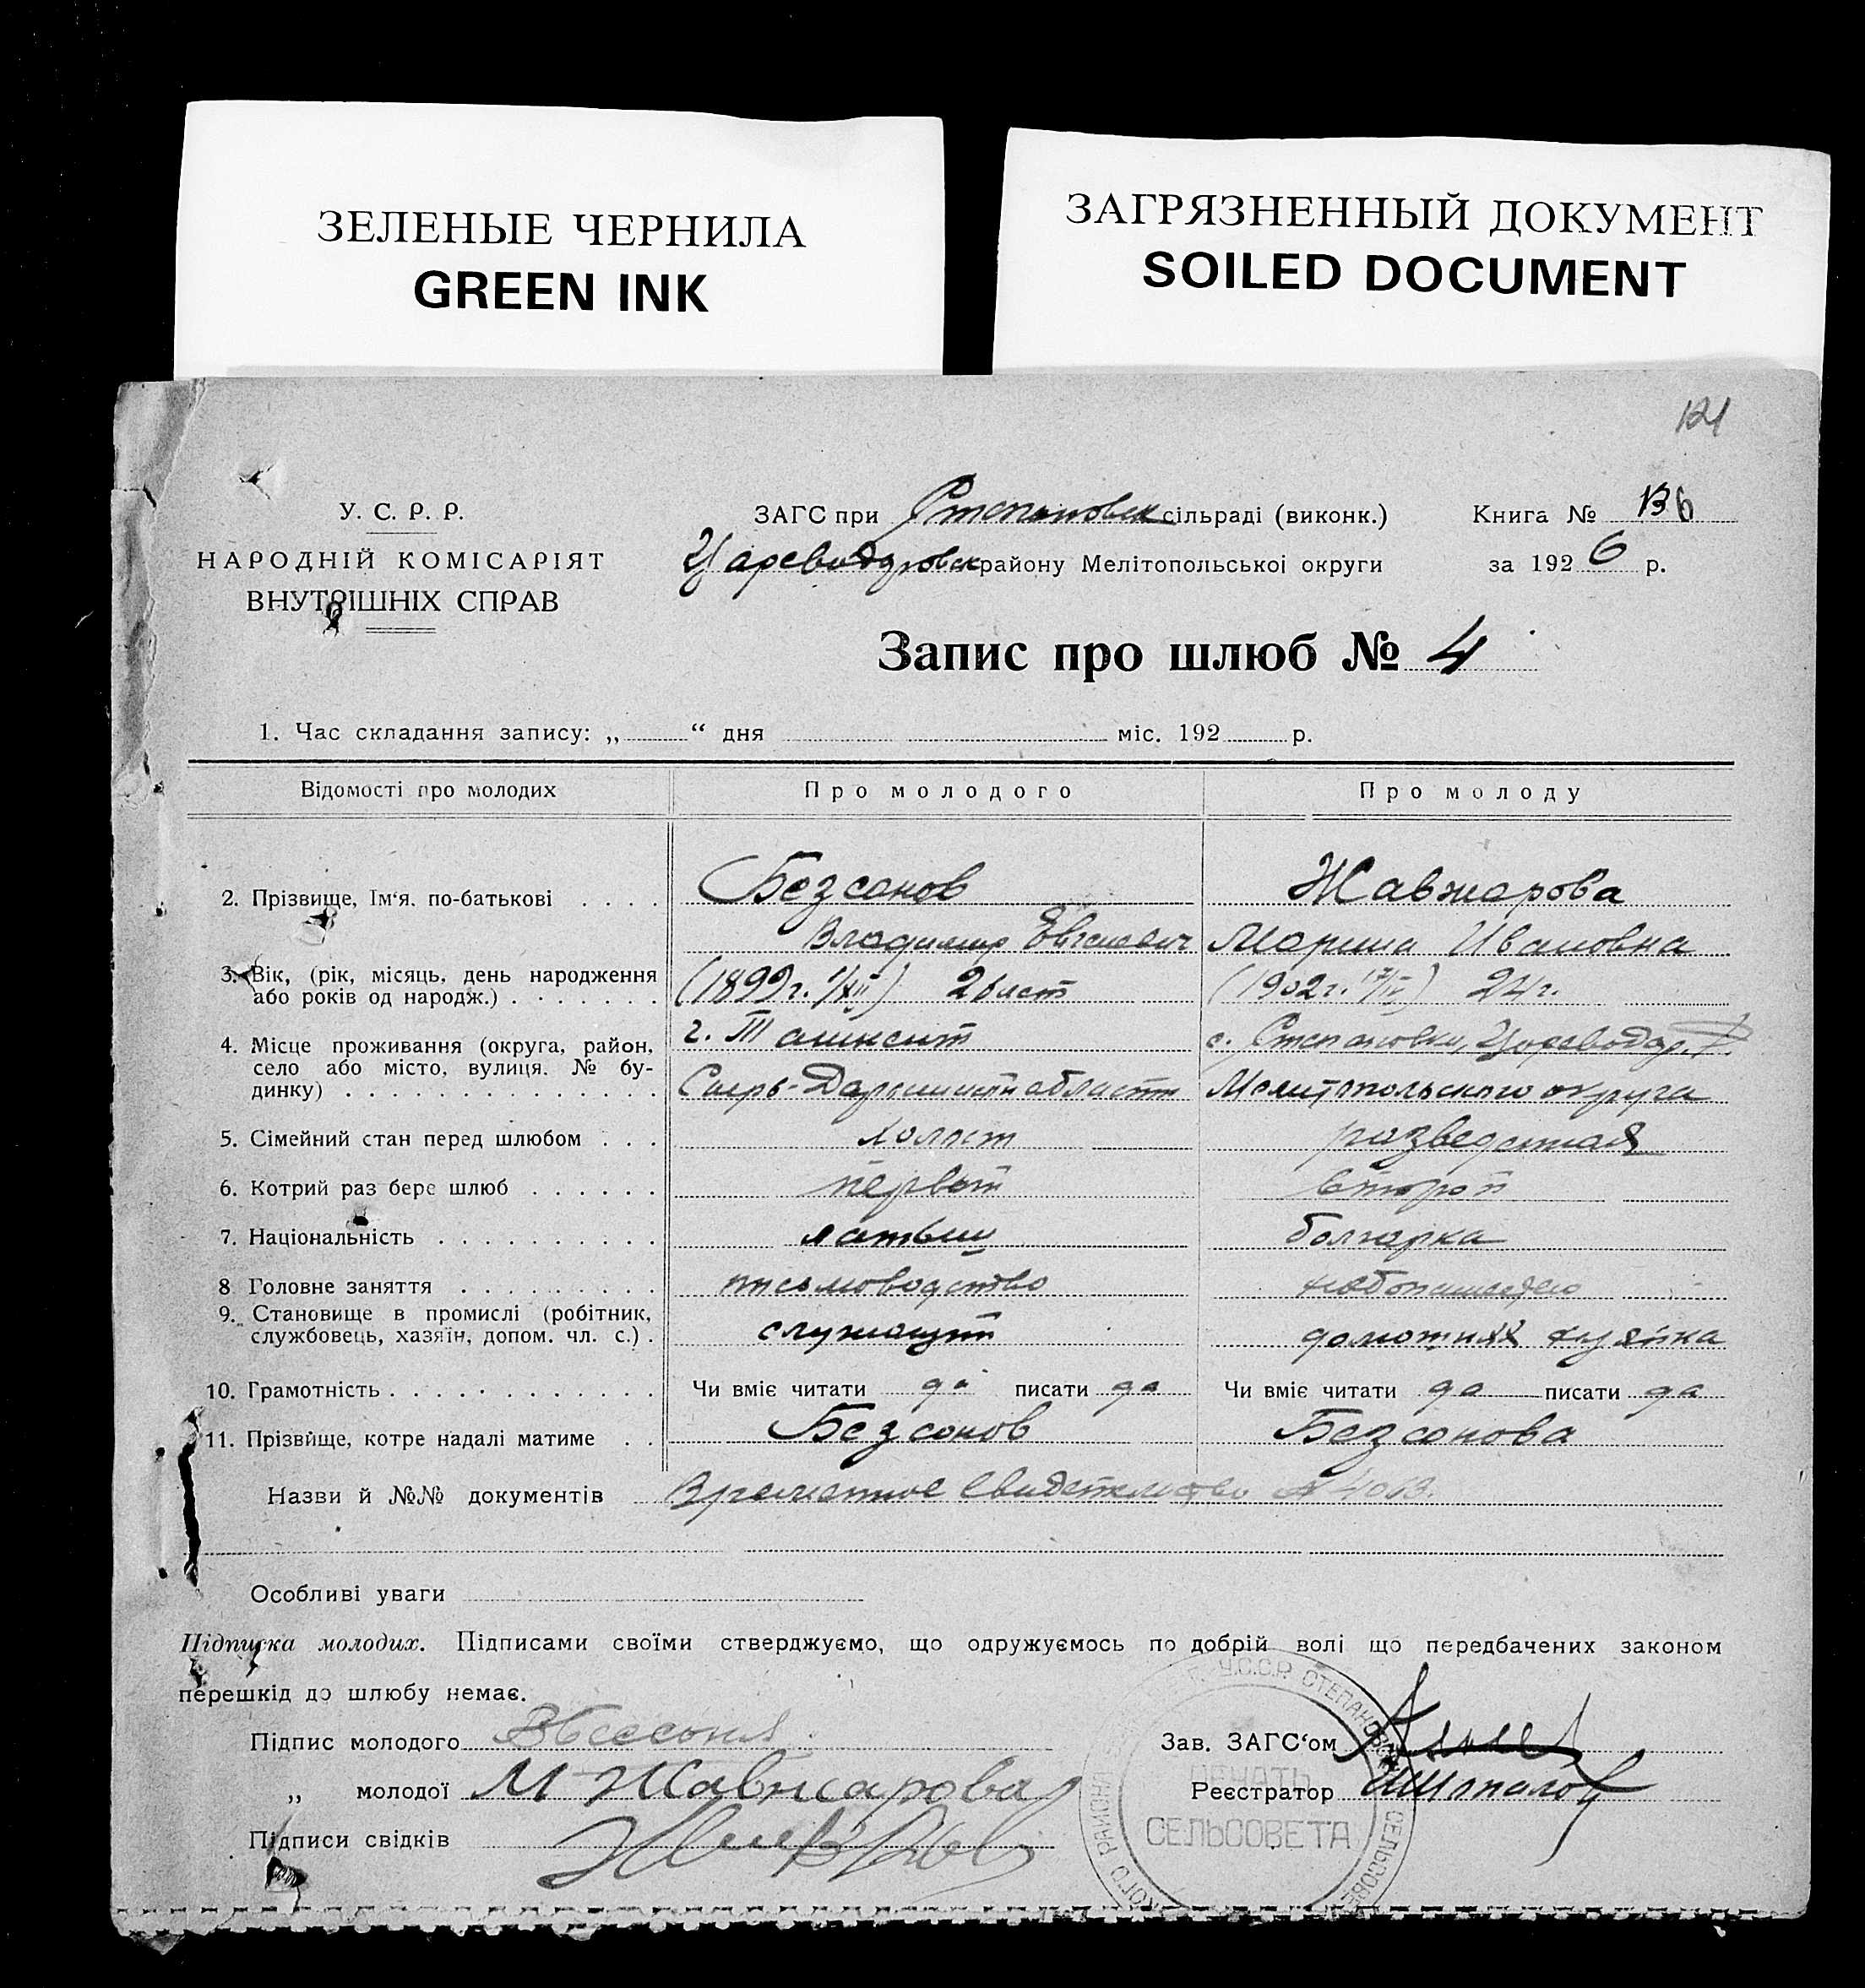 ЗЕЛЕНЫЕ ЧЕРНИЛА
GREEN INK
ЗАГРЯЗНЕННЫЙ ДОКУМЕНТ
SOILED DOCUMENT
121
У. С. Р. Р.
НАРОДНІЙ КОМІСАРІЯТ
ВНУТРІШНІХ СПРАВ
ЗАГС при Степановск сільраді (виконк.)
Цареводаровск району Мелітопольської округи
Книга №
за 1926 р.
Запис про шлюб № 4
1. Час складання запису: „ “ дня міс. 192 р.
Відомості про молодих Про молодого Про молоду
2. Прізвище, Ім‘я, по-батькові . . . . Безсонов Жавжарова
Владимир Евгеневич Марина Ивановна
3. Вік, (рік, місяць, день народження
або років од народж.) . . . . . . . (1899 г. 1/XII) 26 лет (1902 г. 17/IV) 24 г.
4. Місце проживання (округа, район, г. Ташкент с. Степановки, Цареводар. Р.
село або місто, вулиця, № бу-
динку) . . . . . . . . . . . . . . Сыр-Дарьинской области Мелитопольского округа
5. Сімейний стан перед шлюбом . . . холост разведенная
6. Котрий раз бере шлюб . . . . . . первый второй
7. Національність . . . . . . . . . . латыш болгарка
8 Головне заняття . . . . . . . . . письмоводство хлебопашество
9. Становище в промислі (робітник,
службовець, хазяїн, допом. чл. с.) . служащий
10. Грамотність . . . . . . . . . . . . Чи вміє читати да писати да Чи вміє читати да писати да
11. Прізвище, котре надалі матиме . . Безсонов Безсонова
Назви й №№ документів Временное свидетельство № 4013.
Особливі уваги
Підписка молодих. Підписами своїми стверджуємо, що одружуємось по добрій волі що передбачених законом
перешкід до шлюбу немає.
Підпис молодого
„ молодої М Жавжарова
Підписи свідків
Зав. ЗАГС‘ом
Реєстратор
У.С.С.Р. СТЕПАНОВСК СЕЛЬСОВЕ
ПЕЧАТЬ
СЕЛЬСОВЕТА